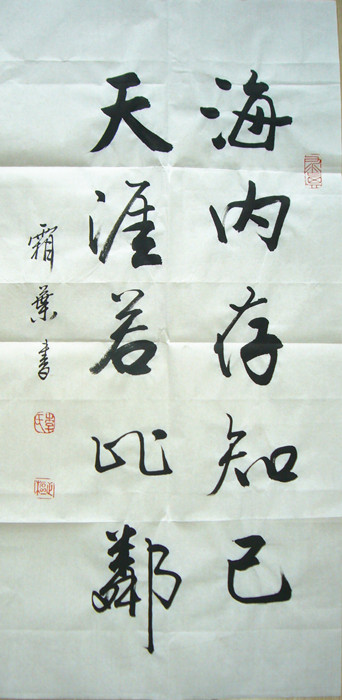 海内存知己
天涯若比鄰
霜葉書